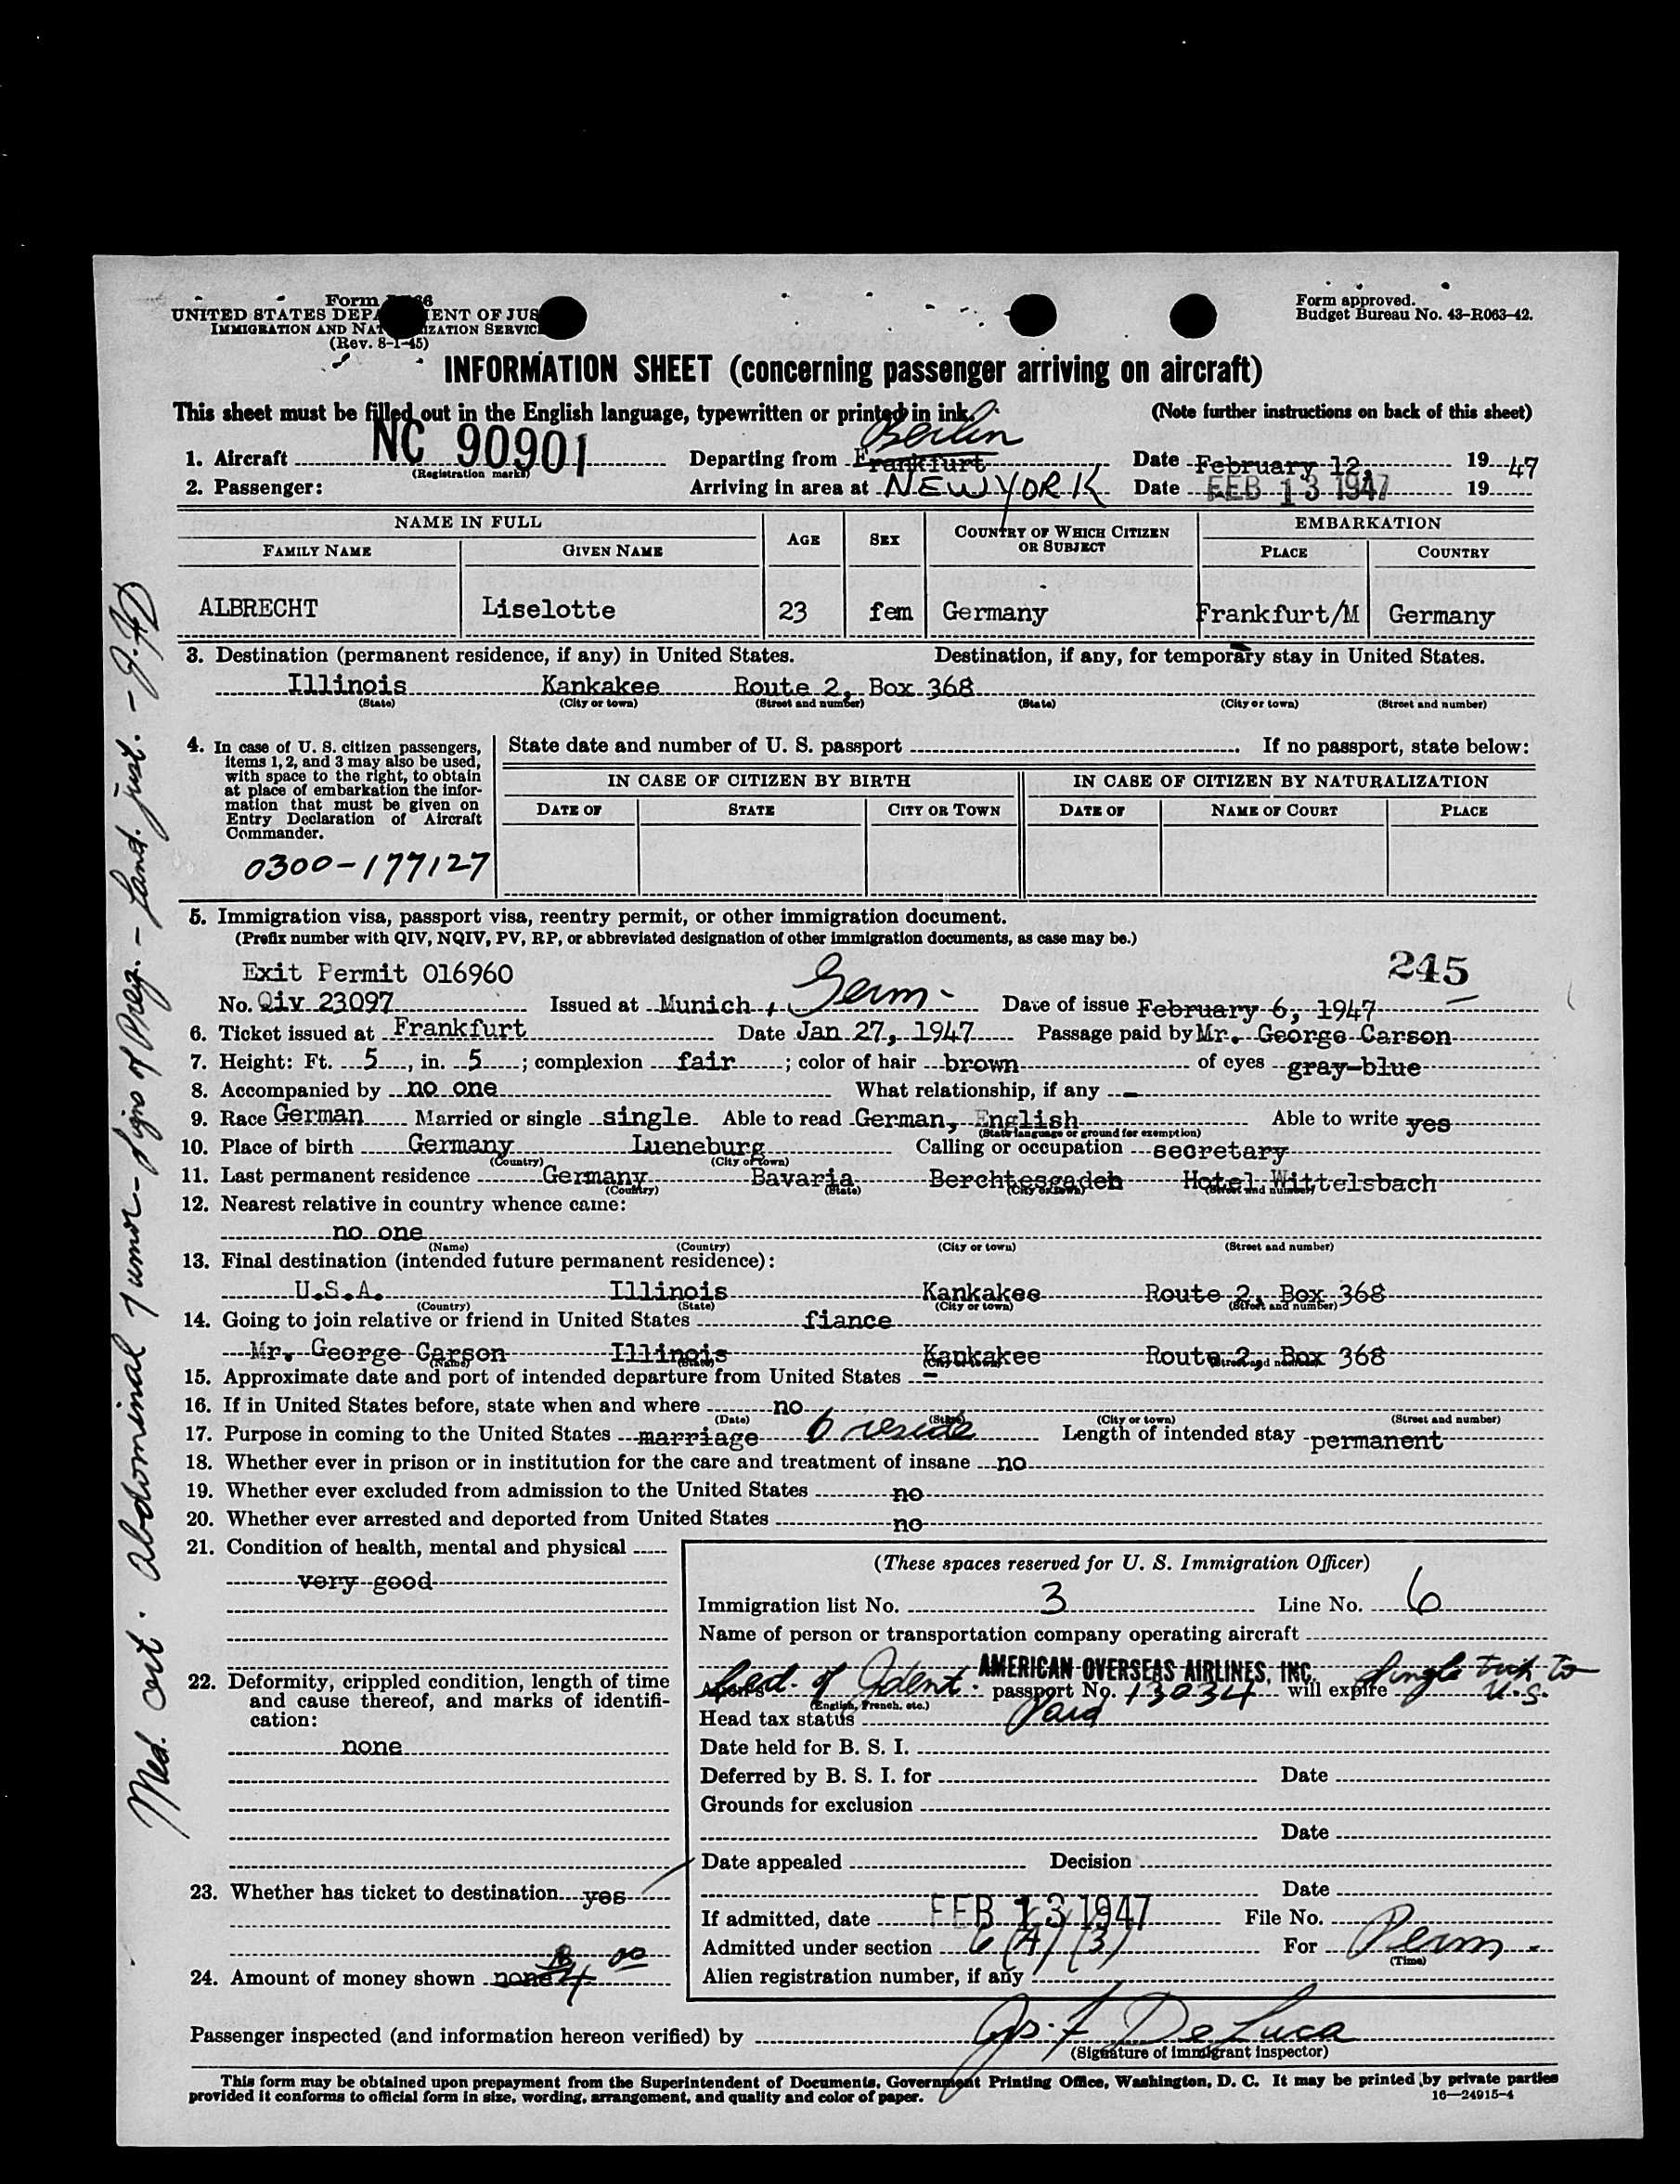 Form
UNITED STATES DEPARTMENT OF JUSTICE
IMMIGRATION AND NATURALIZATION SERVICE
(Rev. 8-1-45)
Form approved.
Budget Bureau No. 43-R063-42.
INFORMATION SHEET (concerning passenger arriving on aircraft)
This sheet must be filled out in the English language, typewritten or printed in ink. (Note further instructions on back of this sheet)
Berlin
1. Aircraft NC 90901 Departing from Frankfurt Date February 12, 1947
(Registration marks)
2. Passenger: Arriving in area at NEW YORK Date FEB 13 1947 19
NAME IN FULL AGE SEX COUNTRY OF WHICH CITIZEN OR SUBJECT EMBARKATION
FAMILY NAME GIVEN NAME PLACE COUNTRY
ALBRECHT Liselotte 23 fem Germany Frankfurt/M Germany
3. Destination (permanent residence, if any) in United States. Destination, if any, for temporary stay in United States.
Illinois Kankakee Route 2, Box 368
(State) (City or town) (Street and number) (State) (City or town) (Street and number)
4. In case of U. S. citizen passengers,
items 1, 2, and 3 may also be used,
with space to the right, to obtain
at place of embarkation the infor-
mation that must be given on
Entry Declaration of Aircraft
Commander.
0300-177127
State date and number of U. S. passport . If no passport, state below:
IN CASE OF CITIZEN BY BIRTH IN CASE OF CITIZEN BY NATURALIZATION
DATE OF STATE CITY OR TOWN DATE OF NAME OF COURT PLACE
5. Immigration visa, passport visa, reentry permit, or other immigration document.
(Prefix number with QIV, NQIV, PV, RP, or abbreviated designation of other immigration documents, as case may be.)
Exit Permit 016960 245
No. Qiv 23097 Issued at Munich, Germ. Date of issue February 6, 1947
6. Ticket issued at Frankfurt Date Jan 27, 1947 Passage paid by Mr. George Carson
7. Height: Ft. 5, in. 5; complexion fair; color of hair brown of eyes gray-blue
8. Accompanied by no one What relationship, if any -
9. Race German Married or single single Able to read German, English Able to write yes
(State language or ground for exemption)
10. Place of birth Germany Lueneburg Calling or occupation secretary
(Country) (City or town)
11. Last permanent residence Germany Bavaria Berchtesgaden Hotel Wittelsbach
(Country) (State) (City or town) (Street and number)
12. Nearest relative in country whence came:
no one
(Name) (Country) (City or town) (Street and number)
13. Final destination (intended future permanent residence):
U.S.A. Illinois Kankakee Route 2, Box 368
(Country) (State) (City or town) (Street and number)
14. Going to join relative or friend in United States fiance
Mr. George Carson Illinois Kankakee Route 2, Box 368
(Name) (State) (City or town) (Street and number)
15. Approximate date and port of intended departure from United States -
16. If in United States before, state when and where no
(Date) (State) (City or town) (Street and number)
17. Purpose in coming to the United States marriage to reside Length of intended stay permanent
18. Whether ever in prison or in institution for the care and treatment of insane no
19. Whether ever excluded from admission to the United States no
20. Whether ever arrested and deported from United States no
21. Condition of health, mental and physical
very good
22. Deformity, crippled condition, length of time
and cause thereof, and marks of identifi-
cation:
none
23. Whether has ticket to destination yes
24. Amount of money shown none 4 00
(These spaces reserved for U. S. Immigration Officer)
Immigration list No. 3 Line No. 6
Name of person or transportation company operating aircraft
AMERICAN OVERSEAS AIRLINES, INC.
of Ident. passport No. 13034 will expire Single to U.S.
(English, French, etc.)
Head tax status Paid
Date held for B. S. I.
Deferred by B. S. I. for Date
Grounds for exclusion
Date
Date appealed Decision
Date
If admitted, date FEB 13 1947 File No.
Admitted under section 6 (A) (3) For Perm.
(Time)
Alien registration number, if any
Passenger inspected (and information hereon verified) by Jos. F. DeLuca
(Signature of immigrant inspector)
This form may be obtained upon prepayment from the Superintendent of Documents, Government Printing Office, Washington, D. C. It may be printed by private parties
provided it conforms to official form in size, wording, arrangement, and quality and color of paper. 16—24915-4
Med. cert. Abdominal Tumor - Signs of Preg. - Land. just. -